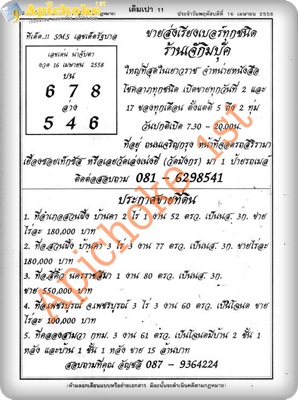 เดิมเปา 11 ประจำวันพฤหัสบดีที่ 16 เมษายน 2558
ทีเด็ด..!! SMS เลขเด็ดรัฐบาล
เลขเด่น นำจับตา
งวด 16 เมษายน 2558
บน
6 7 8
ล่าง
5 4 6
ขายส่งเรียงเบอร์ทุกชนิด
ร้านเจ๊กิมปุ๊ค
ใหญ่ที่สุดในเยาวราช จำหน่ายหนังสือ
โชคลาภทุกชนิด เปิดขายทุกวันที่ 2 และ
17 ของทุกเดือน ตั้งแต่ตี 5 ถึง 2 ทุ่ม
วันปกติเปิด 7.30 - 20.00น.
ที่อยู่ ถนนเจริญกรุง หน้าที่จอดรถสิริรามา
เยื้องซอยเท็กซัส หรือเลยวัดเล่งเน่ยยี่ (วัดมังกร) มา 1 ป้ายรถเมล์
ติดต่อสอบถาม 081 - 6298541
ประกาศขายที่ดิน
1. ที่อำเภอสวนผึ้ง บ้านคา 2 ไร่ 1 งาน 52 ตรว. เป็นนส. 3ก. ขาย
ไร่ละ 180,000 บาท
2. ที่อ.สวนผึ้ง บ้านคา 3 ไร่ 3 งาน 77 ตรว. เป็นนส. 3ก. ขายไร่ละ
180,000 บาท
3. ที่อ.สีคิ้ว นครราชสีมา 1 งาน 80 ตรว. เป็นนส. 3ก.
ขาย 550,000 บาท
4. ที่อ.เพชรบูรณ์ จ.เพชรบูรณ์ 3 ไร่ 3 งาน 60 ตรว. เป็นโฉนด ขาย
ไร่ละ 100,000 บาท
5. ที่คลองสามวา กทม. 3 งาน 61 ตรว. เป็นโฉนดมีบ้าน 2 ชั้น 1
หลัง และบ้าน 1 ชั้น 1 หลัง ขาย 15 ล้านบาท
สอบถามที่คุณ อัญชลี 087 - 9364224
(ห้ามลอกเลียนแบบหรือถ่ายเอกสาร มิฉะนั้นจะดำเนินคดีตามกฎหมาย)
Apichoke 1st